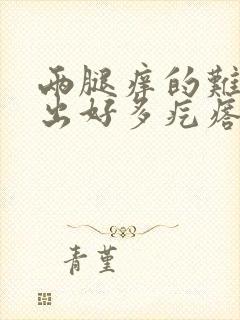 两腿痒的難
出好多疙瘩
青堇